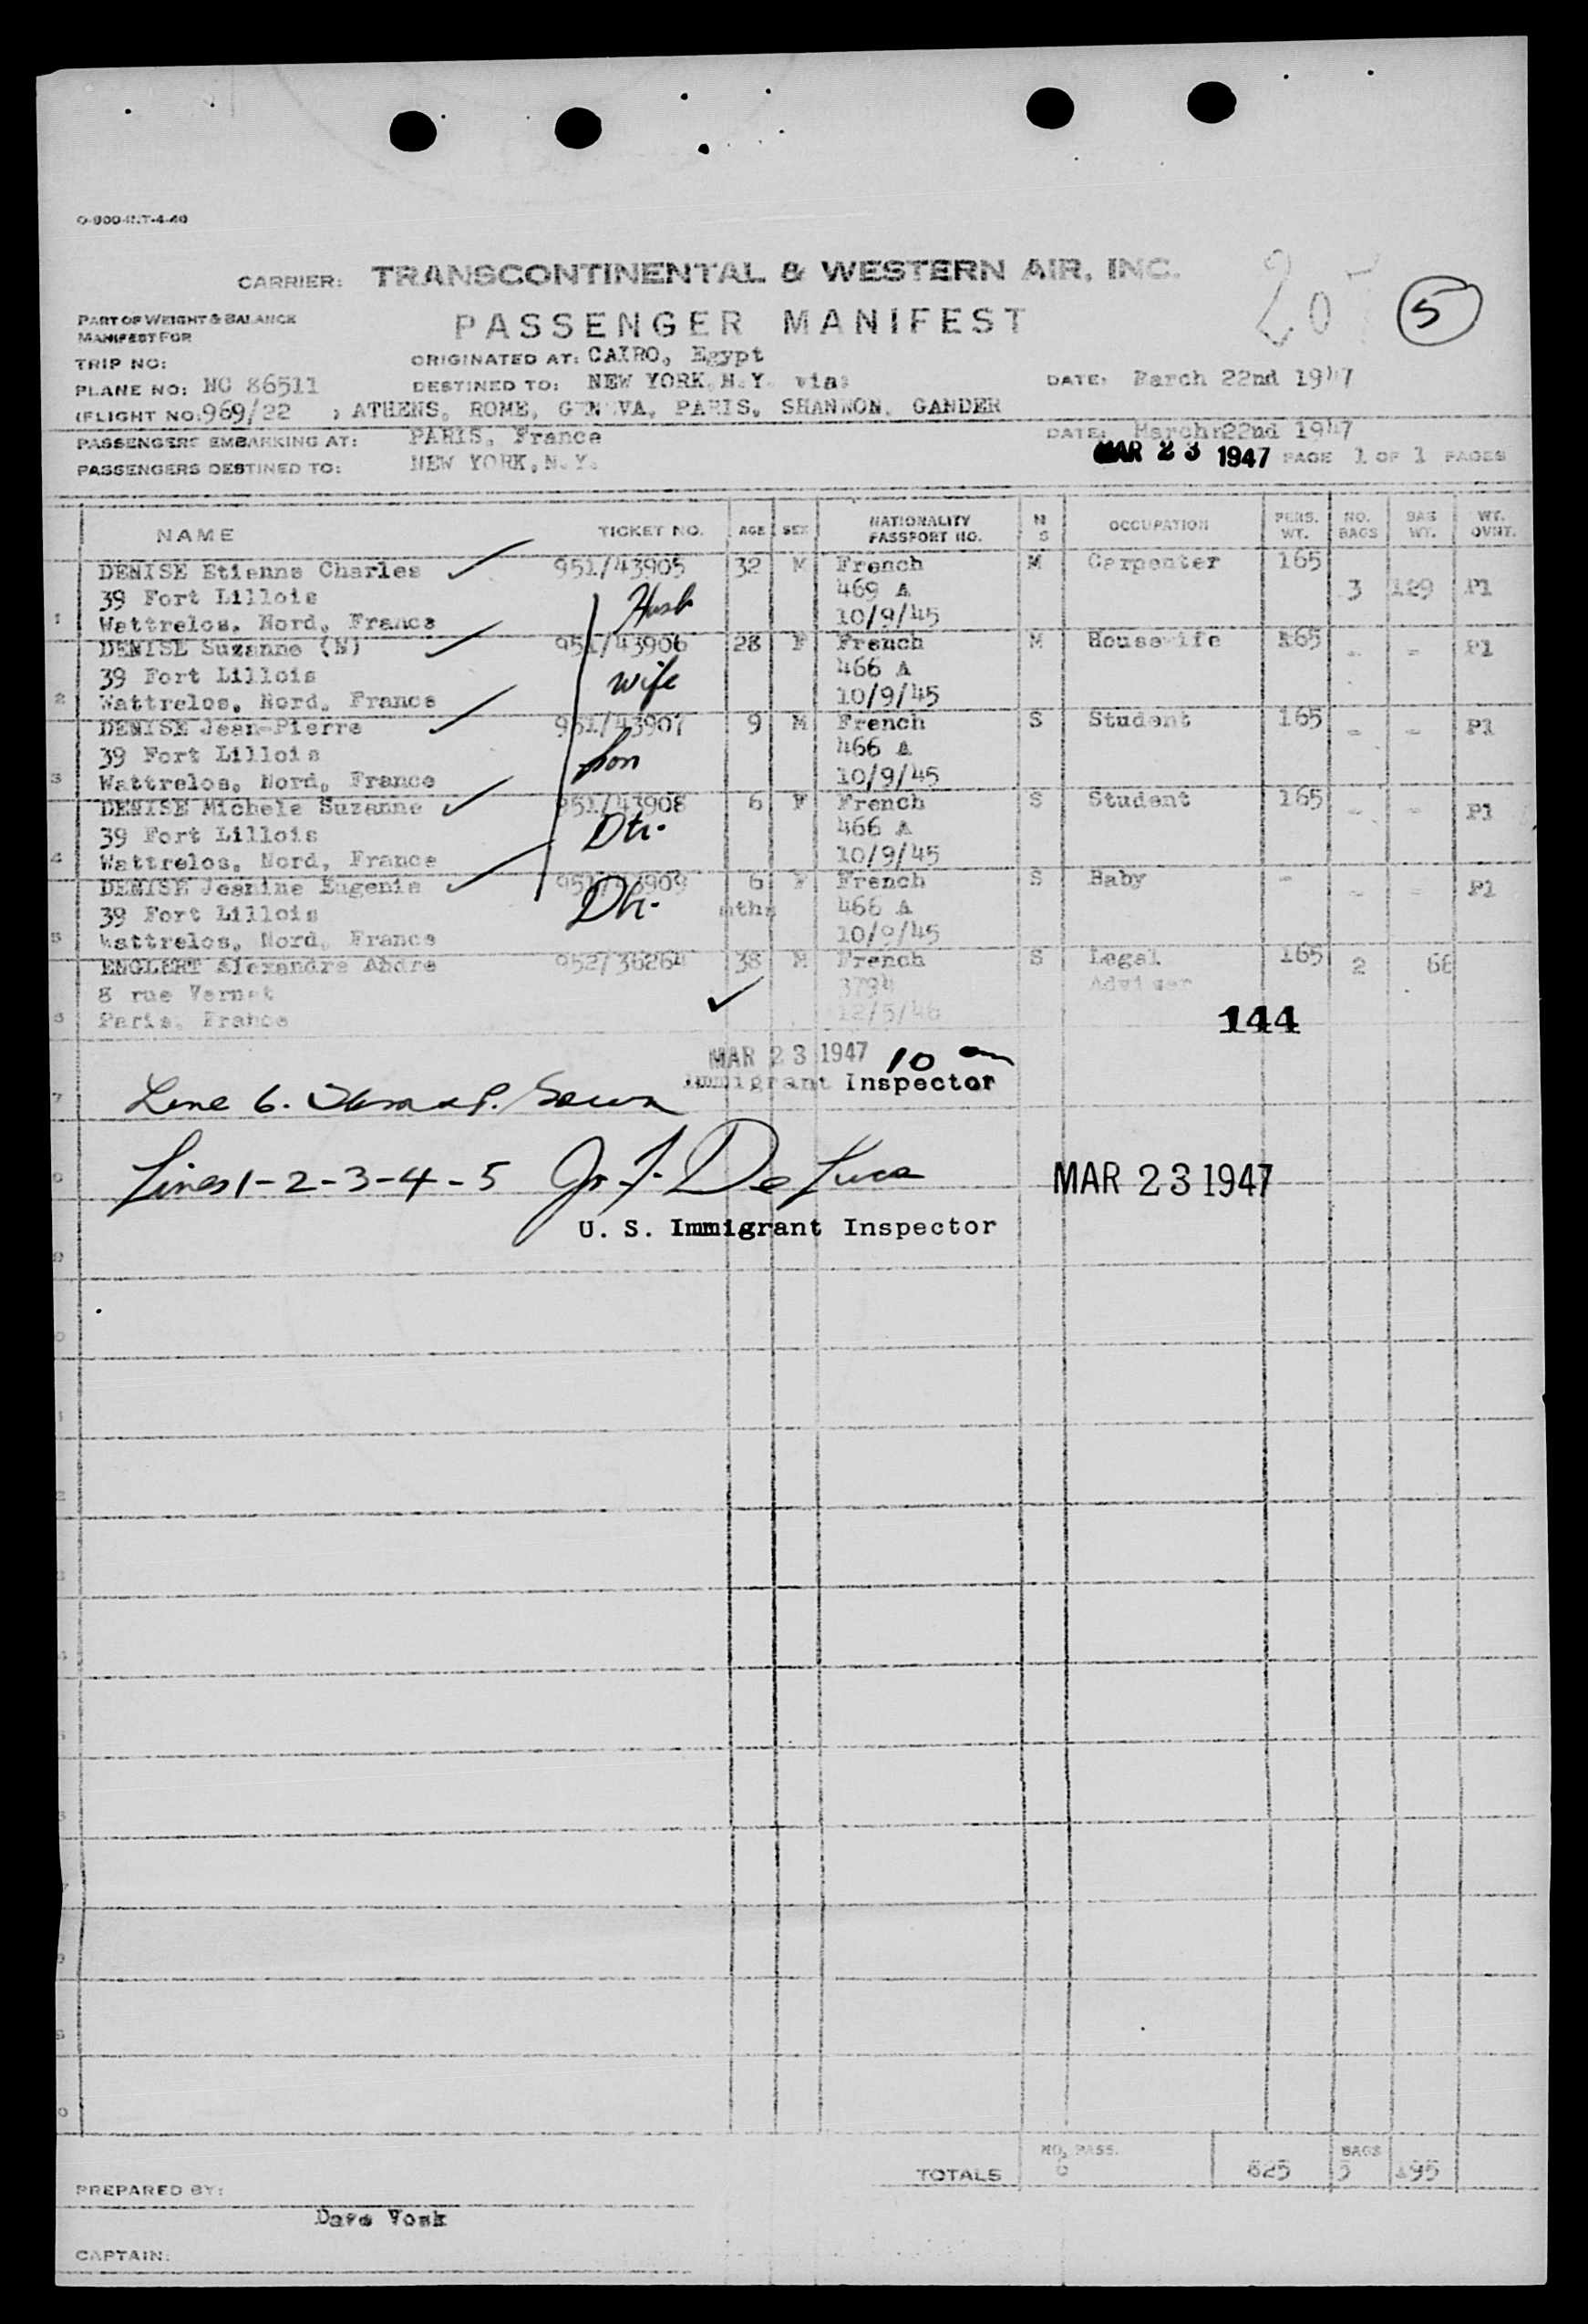 O-800-INT-4-46
CARRIER: TRANSCONTINENTAL & WESTERN AIR, INC.
20 5
PART OF WEIGHT & BALANCE
MANIFEST FOR
PASSENGER MANIFEST
TRIP NO: ORIGINATED AT: CAIRO, Egypt
PLANE NO: NC 86511 DESTINED TO: NEW YORK, N.Y. via: DATE: March 22nd 1947
(FLIGHT NO: 969/22 ; ATHENS, ROME, GENEVA, PARIS, SHANNON, GANDER
PASSENGERS EMBARKING AT: PARIS, France DATE: March 22nd 1947
PASSENGERS DESTINED TO: NEW YORK, N.Y. MAR 23 1947 PAGE 1 OF 1 PAGES
NAME TICKET NO. AGE SEX NATIONALITY PASSPORT NO. M S OCCUPATION PERS. WT. NO. BAGS BAG WT. WT. OVNT.
DENISE Etienne Charles 951/43905 32 M French M Carpenter 165
39 Fort Lillois Husb 469 A 3 129 P1
1 Wattrelos, Nord, France 10/9/45
DENISE Suzanne (N) 951/43906 28 F French M Housewife 165 - - P1
39 Fort Lillois wife 466 A
2 Wattrelos, Nord, France 10/9/45
DENISE Jean-Pierre 951/43907 9 M French S Student 165 - - P1
39 Fort Lillois Son 466 A
3 Wattrelos, Nord, France 10/9/45
DENISE Michele Suzanne 951/43908 6 F French S Student 165 - - P1
39 Fort Lillois Dtr. 466 A
4 Wattrelos, Nord, France 10/9/45
DENISE Jeanine Eugenie 951/43909 6 F French S Baby - - - P1
39 Fort Lillois Dtr. mths 466 A
5 Wattrelos, Nord, France 10/9/45
ENGLERT Alexandre Andre 952/36264 38 M French S Legal 165 2 66
8 rue Vernet 3794 Adviser
6 Paris, France 12/5/46 144
MAR 23 1947 10 am
Immigrant Inspector
7 Line 6.
Lines 1-2-3-4-5 De Luca MAR 23 1947
U. S. Immigrant Inspector
TOTALS NO. PASS. 6 825 BAGS 5 195
PREPARED BY:
Dave Vosk
CAPTAIN: